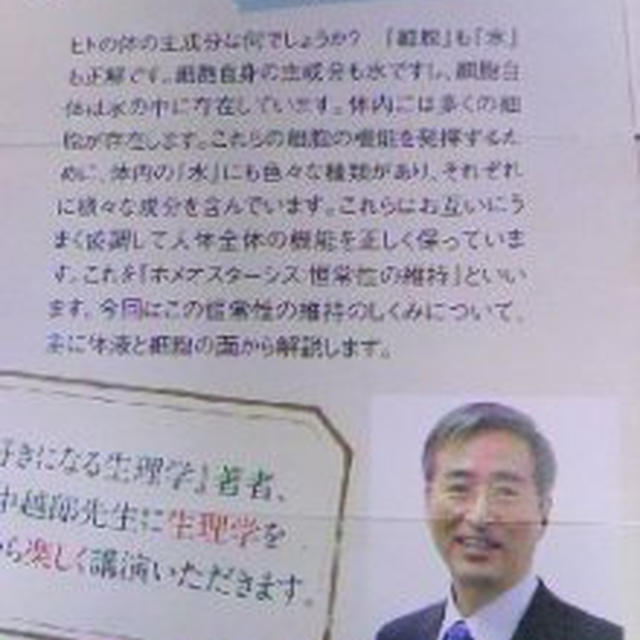 ヒトの体の主成分は何でしょうか？ 『細胞』も『水』
も正解です。細胞自身の主成分も水ですし、細胞自
体は水の中に存在しています。体内には多くの細
胞が存在します。これらの細胞の機能を発揮するた
めに、体内の『水』にも色々な種類があり、それぞれ
に様々な成分を含んでいます。これらはお互いにう
まく協調して人体全体の機能を正しく保っていま
す。これを『ホメオスターシス:恒常性の維持』といい
ます。今回はこの恒常性の維持のしくみについて、
主に体液と細胞の面から解説します。
好きになる生理学』著者、
中越郎先生に生理学を
ら楽しく講演いただきます。